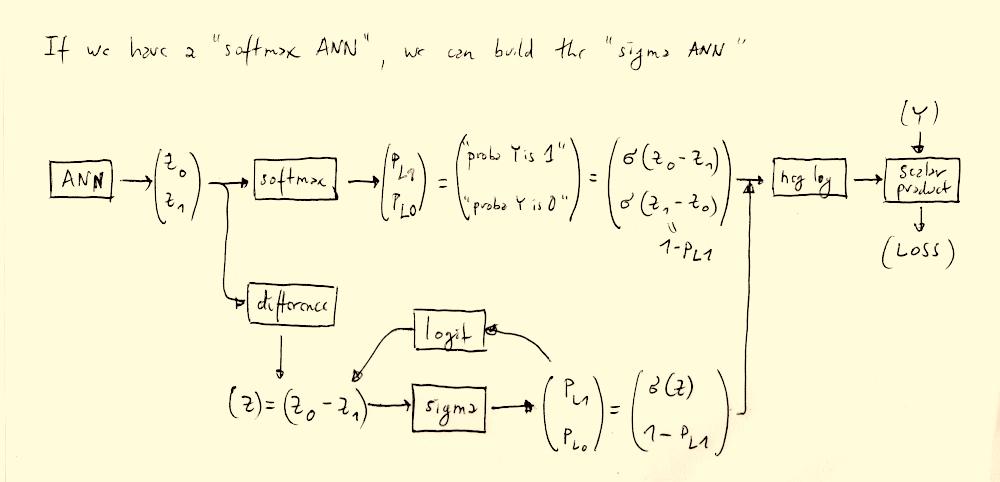 If we have a "softmax ANN", we can build the "sigma ANN"
(Y)
ANN
(z₀ z₁)
softmax
(P_L1 P_L0) = ("proba Y is 1" "proba Y is 0") = (σ(z₀-z₁) σ(z₁-z₀))
" 1-P_L1
neg log
scalar product
(LOSS)
difference
logit
(z)=(z₀-z₁)
sigma
(P_L1 P_L0) = (σ(z) 1-P_L1)